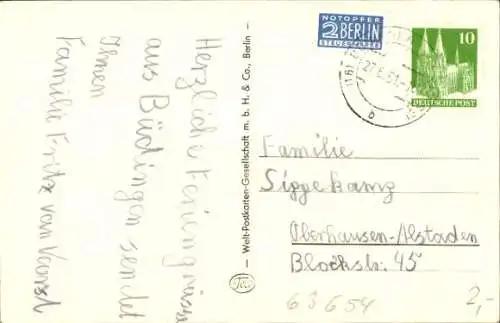 Herzliche Feriengrüsse
aus Büdingen sendet
Ihnen
Familie Fritz van Voorst
— Welt-Postkarten-Gesellschaft m. b. H. & Co., Berlin —
NOTOPFER
2 BERLIN
STEUERMARKE
27.6.51
b
10
DEUTSCHE POST
Familie
Sippekamp
Oberhausen-Alstaden
Blockstr. 45
63654
2,-